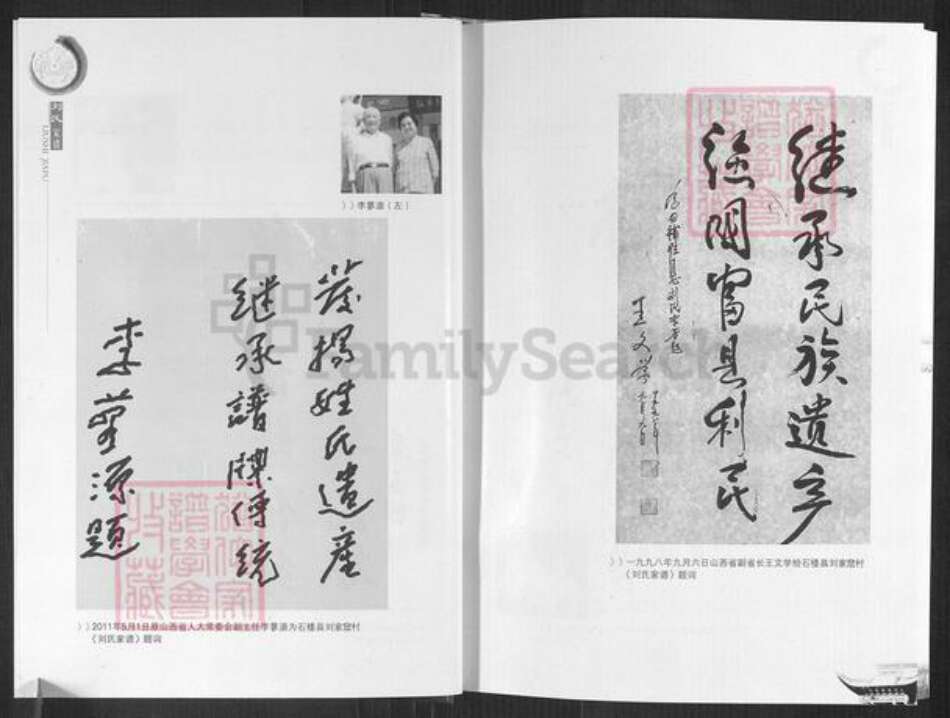 刘氏家谱
LIUSHI JIAPU
〉〉李蓼源(左)
发扬姓氏遗产
继承谱牒传统
李蓼源题
〉〉2011年5月1日原山西省人大常委会副主任李蓼源为石楼县刘家垈村
《刘氏家谱》题词
继承民族遗产
治国富县利民
王文学
〉〉一九九八年九月六日山西省副省长王文学给石楼县刘家垈村
《刘氏家谱》题词
FamilySearch